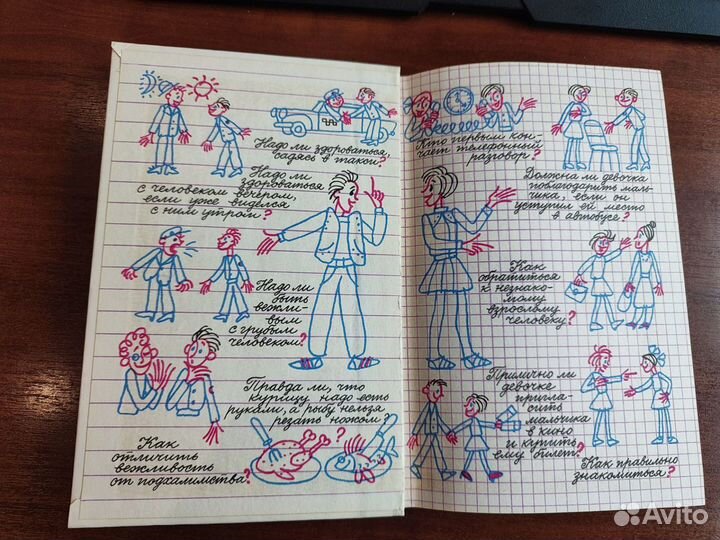 Надо ли здороваться,
садясь в такси?
Надо ли
здороваться
с человеком вечером,
если уже виделся
с ним утром?
Надо ли
быть
вежли-
вым
с грубым
человеком?
Правда ли, что
курицу надо есть
руками, а рыбу нельзя
резать ножом?
Как
отличить
вежливость
от подхалимства?
Кто первым кон-
чает телефонный
разговор?
Должна ли девочка
поблагодарить маль-
чика, если он
уступил ей место
в автобусе?
Как
обратиться
к незнако-
мому
взрослому
человеку?
Прилично ли
девочке
пригла-
сить
мальчика
в кино
и купить
ему билет?
Как правильно
знакомиться?
Avito